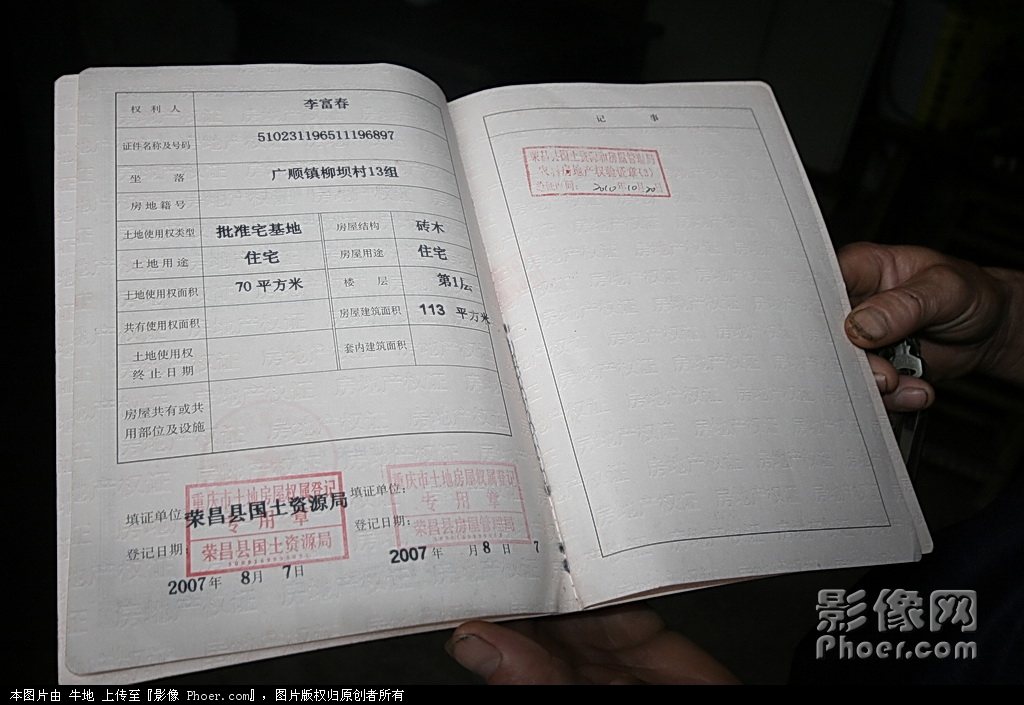 权利人 李富春
证件名称及号码 510231196511196897
坐落 广顺镇柳坝村13组
房地籍号
土地使用权类型 批准宅基地 房屋结构 砖木
土地用途 住宅 房屋用途 住宅
土地使用权面积 70 平方米 楼层 第1层
共有使用权面积 房屋建筑面积 113 平方米
土地使用权终止日期 套内建筑面积
房屋共有或共
用部位及设施
重庆市土地房屋权属登记
专用章
荣昌县国土资源局
填证单位: 荣昌县国土资源局
登记日期:
2007年 8月 7日
重庆市土地房屋权属登记
专用章
荣昌县房屋管理局
填证单位:
登记日期:
2007 年 月 8 日 7
记事
荣昌县国土资源和房屋管理局
房地产权验证章(3)
2010年10月20
影像网
Phoer.com
本图片由 牛地 上传至『影像 Phoer.com』，图片版权归原创者所有